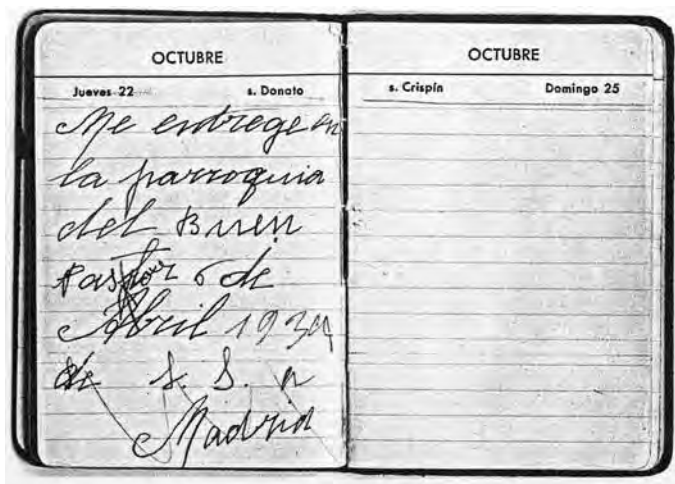 OCTUBRE
Jueves 22 s. Donato
Me entrege en
la parroquia
del Buen
Pastor 6 de
Abril 1939
de S. S. a
Madrid
OCTUBRE
s. Crispín Domingo 25